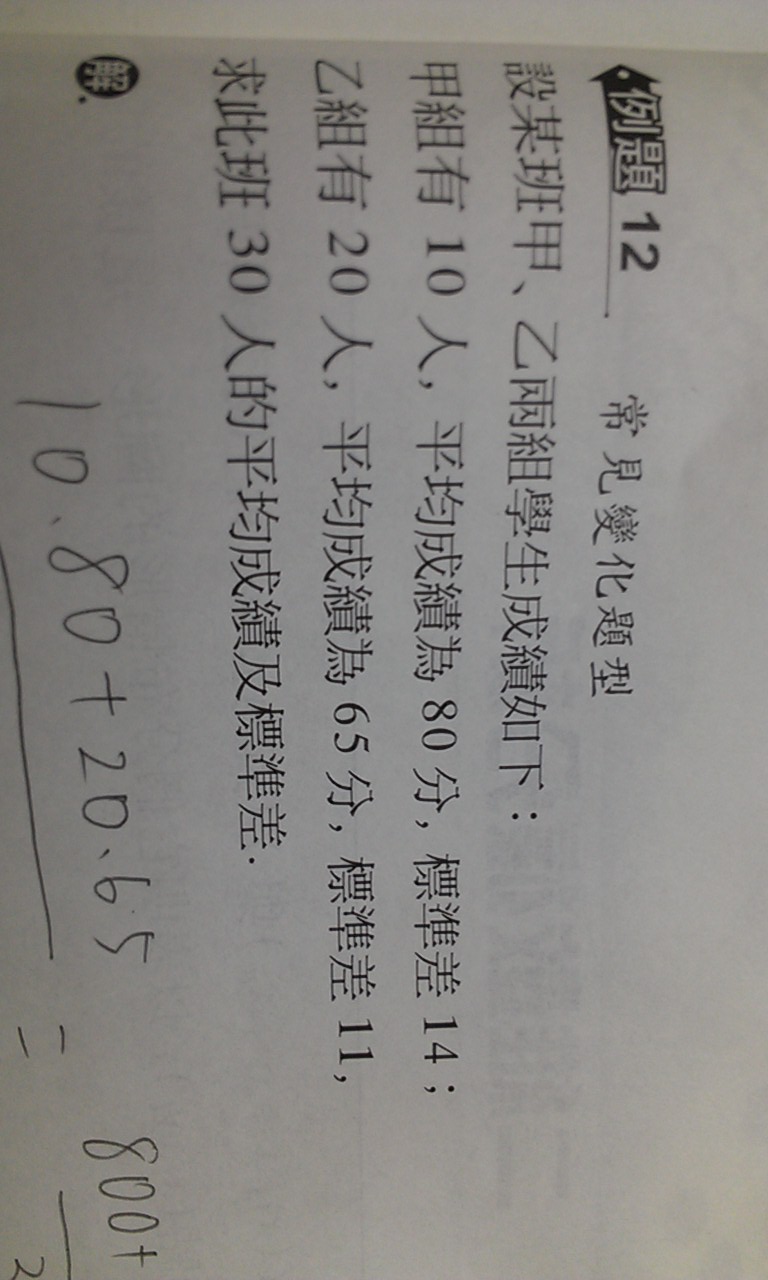 例題 12 常見變化題型
設某班甲、乙兩組學生成績如下：
甲組有 10 人，平均成績為 80 分，標準差 14；
乙組有 20 人，平均成績為 65 分，標準差 11，
求此班 30 人的平均成績及標準差．
解．
10.80+20.65 = 800+